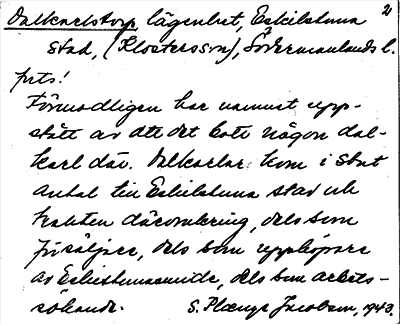 Dalkarlstorp lägenhet, Eskilstuna 2
stad, (Klostersson), Södermanlands l.
prts!
Förmodligen har namnet upp-
stått av att det bott någon dal-
karl där. Dalkarlar kom i stort
antal till Eskilstuna stad och
trakten däromkring, dels som
försäljare, dels som uppköpare
av Eskilstunasmide, dels som arbets-
sökande. S. Plænge Jacobson, 1943.